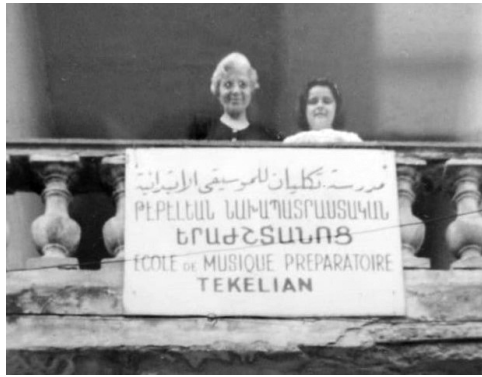 مدرسة تكليان للموسيقى الابتدائية
ԹԷՔԷԼԵԱՆ ՆԱԽԱՊԱՏՐԱՍՏԱԿԱՆ
ԵՐԱԺՇՏԱՆՈՑ
ECOLE DE MUSIQUE PREPARATOIRE
TEKELIAN